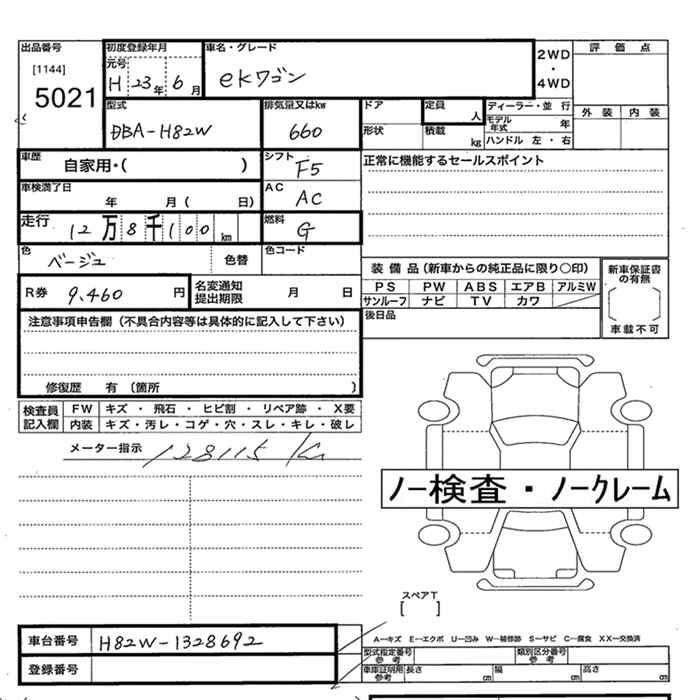 出品番号
[1144]
5021
初度登録年月
元号
H 23年 6月
車名・グレード
ekワゴン
2WD
・
4WD
評価点
外装 内装
型式
DBA-H82W
排気量又はkw
660
ドア
形状
定員
人
積載
kg
ディーラー・並行
モデル年式
年
ハンドル 左・右
車歴
自家用・( )
シフト
F5
正常に機能するセールスポイント
車検満了日
年 月( 日)
AC
AC
走行
12万8千100km
燃料
G
色
ベージュ
色替
色コード
R券 9,460 円
名変通知
提出期限
月 日
装備品(新車からの純正品に限り○印)
PS PW ABS エアB アルミW
サンルーフ ナビ TV カワ
後日品
新車保証書
の有無
車載不可
注意事項申告欄(不具合内容等は具体的に記入して下さい)
修復歴 有 (箇所 )
検査員
記入欄
FW キズ・飛石・ヒビ割・リペア跡・X要
内装 キズ・汚レ・コゲ・穴・スレ・キレ・破レ
メーター指示
128115 Km
ノー検査・ノークレーム
スペアT
[ ]
車台番号 H82W-1328692
登録番号
A―キズ E―エクボ U―凹み W―補修跡 S―サビ C―腐食 XX―交換済
型式指定番号
参考
類別区分番号
参考
車庫証明用
参考
長さ cm 幅 cm 高さ cm